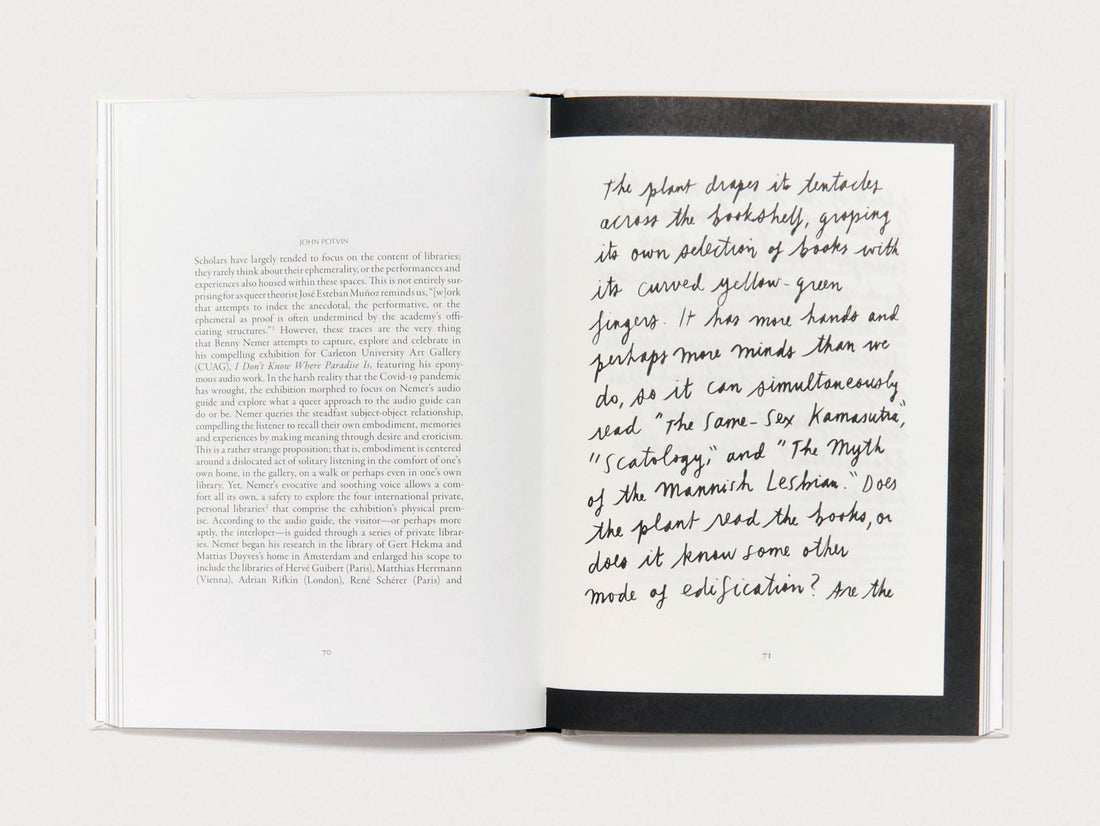 JOHN POTVIN
Scholars have largely tended to focus on the content of libraries;
they rarely think about their ephemerality, or the performances and
experiences also housed within these spaces. This is not entirely sur-
prising for as queer theorist José Esteban Muñoz reminds us, “[w]ork
that attempts to index the anecdotal, the performative, or the
ephemeral as proof is often undermined by the academy’s offi-
ciating structures.”1 However, these traces are the very thing
that Benny Nemer attempts to capture, explore and celebrate in
his compelling exhibition for Carleton University Art Gallery
(CUAG), I Don’t Know Where Paradise Is, featuring his epony-
mous audio work. In the harsh reality that the Covid-19 pandemic
has wrought, the exhibition morphed to focus on Nemer’s audio
guide and explore what a queer approach to the audio guide can
do or be. Nemer queries the steadfast subject-object relationship,
compelling the listener to recall their own embodiment, memories
and experiences by making meaning through desire and eroticism.
This is a rather strange proposition; that is, embodiment is centered
around a dislocated act of solitary listening in the comfort of one’s
own home, in the gallery, on a walk or perhaps even in one’s own
library. Yet, Nemer’s evocative and soothing voice allows a com-
fort all its own, a safety to explore the four international private,
personal libraries2 that comprise the exhibition’s physical prem-
ise. According to the audio guide, the visitor—or perhaps more
aptly, the interloper—is guided through a series of private librar-
ies. Nemer began his research in the library of Gert Hekma and
Mattias Duyves’s home in Amsterdam and enlarged his scope to
include the libraries of Hervé Guibert (Paris), Matthias Herrmann
(Vienna), Adrian Rifkin (London), René Schérer (Paris) and
70
The plant drapes its tentacles
across the bookshelf, groping
its own selection of books with
its curved yellow-green
fingers. It has more hands and
perhaps more minds than we
do, so it can simultaneously
read "The Same-Sex Kamasutra,"
"Scatology," and "The Myth
of the Mannish Lesbian." Does
the plant read the books, or
does it know some other
mode of edification? Are the
71